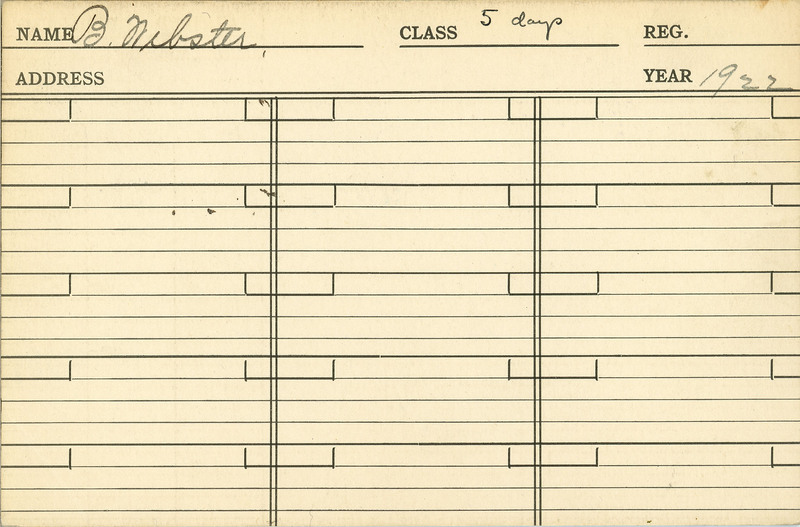 NAME B. Webster, CLASS 5 days REG.
ADDRESS YEAR 1922